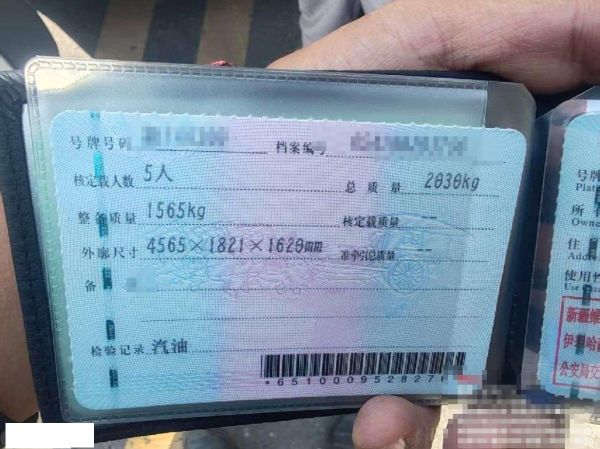 号牌号码
档案编号
核定载人数 5人 总质量 2030kg
整备质量 1565kg 核定载质量 --
外廓尺寸 4565×1821×1620mm 准牵引总质量 --
备
检验记录 汽油
号牌
Plate
所有
Owne
住
Addre
使用性
Use
新疆维
伊犁哈
公安局交